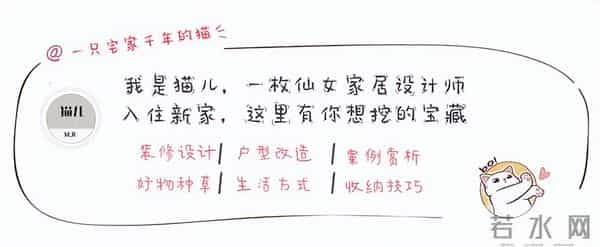 @一只宅家千年的猫
我是猫儿，一枚仙女家居设计师
入住新家，这里有你想挖的宝藏
猫儿
M.R
装修设计 | 户型改造 | 案例赏析
好物种草 | 生活方式 | 收纳技巧
bo!
若水网